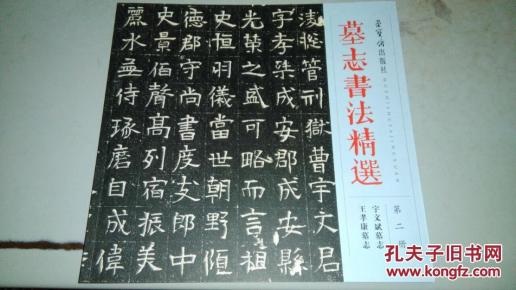 荣宝斋出版社
墓志書法精選
第二册
宇文斌墓志
王孝康墓志
管刑獄曹宇文君
字孝桀成安郡成安縣
光榮之盛可略而言祖
史恒羽儀當世朝野恒
德郡守尚書度支郎中
史景佰聲高列宿振美
麗水無侍琢磨自成偉
孔夫子旧书网
www.kongfz.com